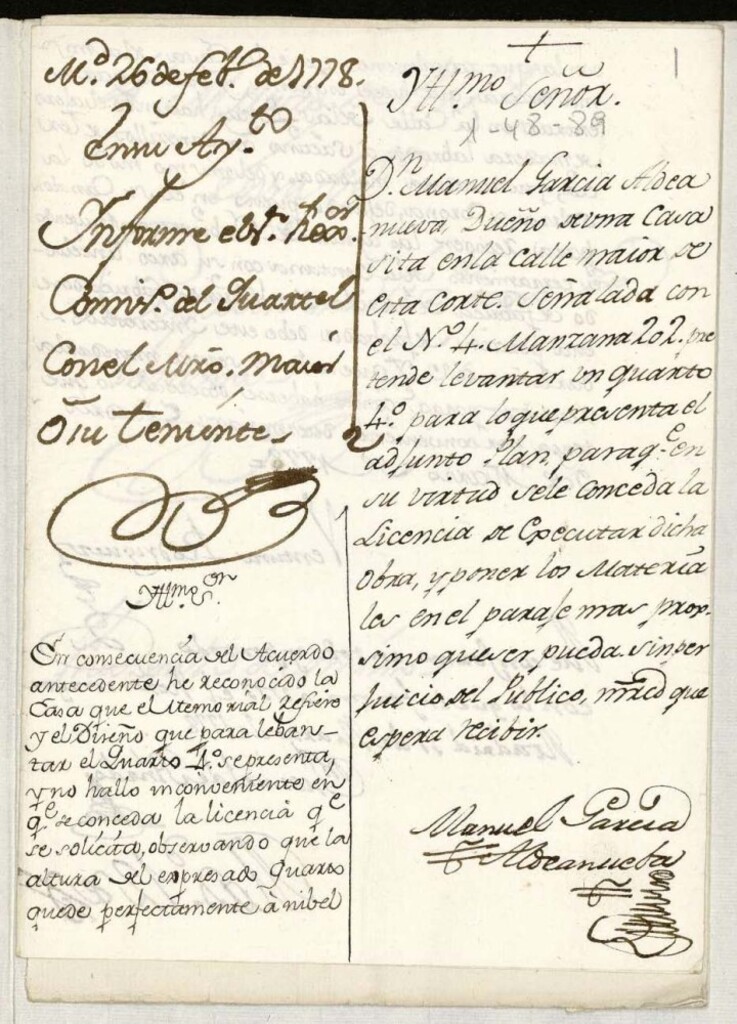 M.d 26 de feb.o de 1778.
En su Ay.to
Informe el S.r Rexor.
Comis.o del Quartel
Con el Mro. maior
ō su teniente
Yll.mo S.or
En consecuencia del Acuerdo
antecedente he reconocido la
Casa que el Memorial refiere
y el Diseño que para leban-
tar el Quarto 4.º se presenta,
y no hallo inconveniente en
q.e se conceda la licencia q.e
se solicita, observando que la
altura del expresado Quarto
quede perfectamente à nibel
+
1
Yll.mo Señor.
1-48-89
D.n Manuel Garcia Aldea
nueva, Dueño de una Casa
sita en la Calle maior de
esta Corte. Señalada con
el N.º 4. Manzana 202. pre
tende levantar un quarto
4.º para lo que presenta el
adjunto Plan, para q.e en
su virtud se le Conceda la
Licencia de Executar dicha
Obra, y poner los Materia
les en el paraje mas prox-
simo que ser pueda sin per
Juicio del Publico, mrcd que
espera recibir.
Manuel Garcia
Aldeanueba